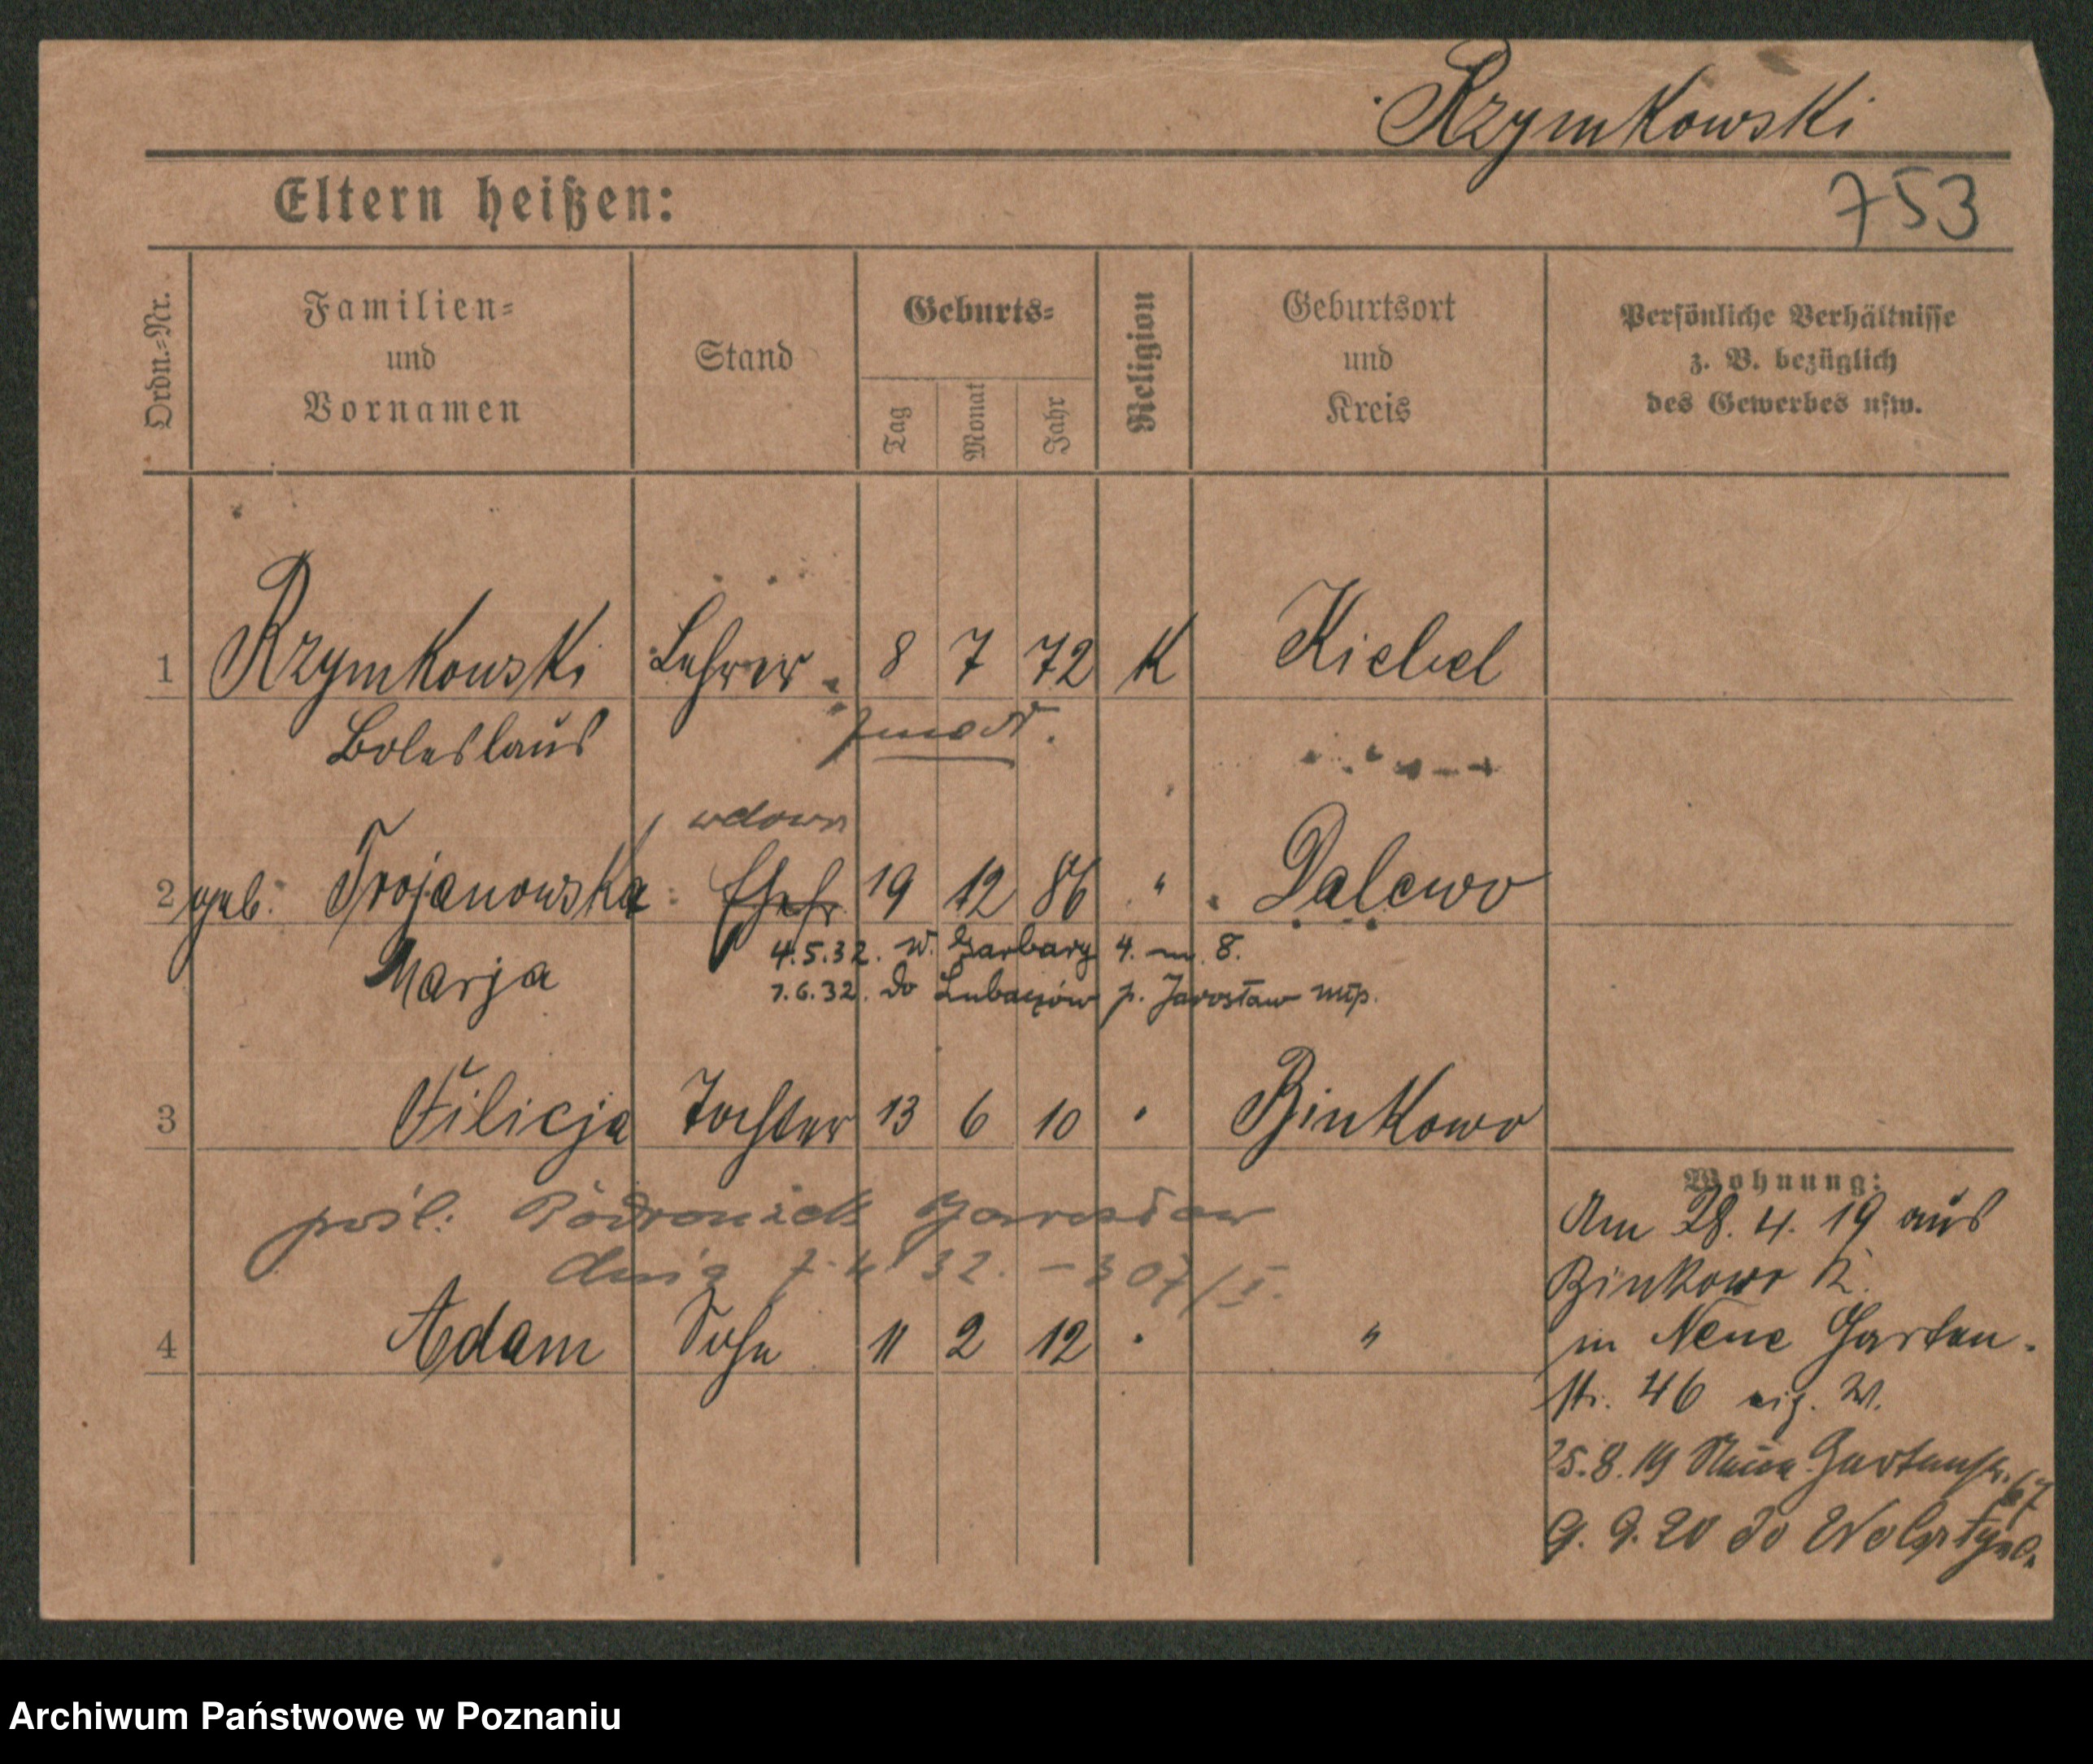 Rzymkowski
Eltern heißen:
753
Ordn.=Nr.
Familien=
und
Vornamen
Stand
Geburts=
Tag
Monat
Jahr
Religion
Geburtsort
und
Kreis
Persönliche Verhältnisse
z. B. bezüglich
des Gewerbes usw.
1 Rzymkowski Lehrer 8 7 72 K Kiebel
Boleslaus
wdowa
2 geb. Trojanowska Ehefr 19 12 86 " Dalewo
4.5.32. W. Garbary 4. m. 8.
Marja
7.6.32. do Lubaczów p. Jarosław
3 Filicja Tochter 13 6 10 " Binkowo
Jarosław
dnia 7.4.32. – 307/I.
4 Adam Sohn 11 2 12 " "
Wohnung:
Am 28. 4. 19 aus
Binkowo K.
in Neue Garten-
str. 46 eig. W.
25.8.19 Neue Gartenstr. 67
9. 9. 20 do
Archiwum Państwowe w Poznaniu